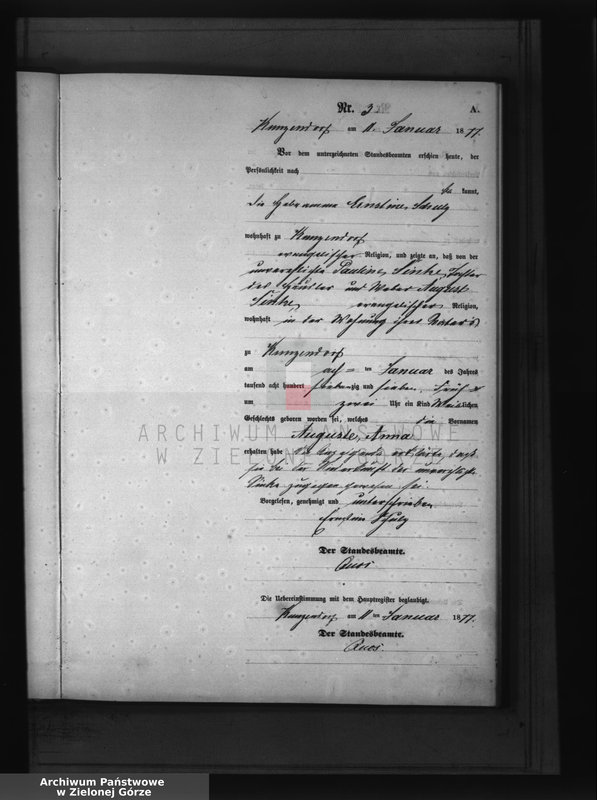 Nr. 3
A.
Kunzendorf am 11. Januar 1877.
Vor dem unterzeichneten Standesbeamten erschien heute, der
Persönlichkeit nach
be kannt,
die Hebamme Ernestine Schulz
wohnhaft zu Kunzendorf
evangelischer Religion, und zeigte an, daß von der
unverehelichten Pauline Tochter
des Häusler und Weber August
evangelischer Religion,
wohnhaft in der Wohnung ihres Vaters
zu Kunzendorf
am acht ten Januar des Jahres
tausend acht hundert siebenzig und sieben, früh
um zwei Uhr ein Kind Weiblichen
Geschlechts geboren worden sei, welches die Vornamen
Auguste, Anna
erhalten habe Die Anzeigende erklärte, daß
sie bei der Niederkunft der unverehelichten
zugegen gewesen sei.
Vorgelesen, genehmigt und unterschrieben
Ernestine Schulz
Der Standesbeamte.
Die Uebereinstimmung mit dem Hauptregister beglaubigt.
Kunzendorf am 11 ten Januar 1877.
Der Standesbeamte.
ARCHIWUM PAŃSTWOWE
W ZIELONEJ GÓRZE
Archiwum Państwowe
w Zielonej Górze